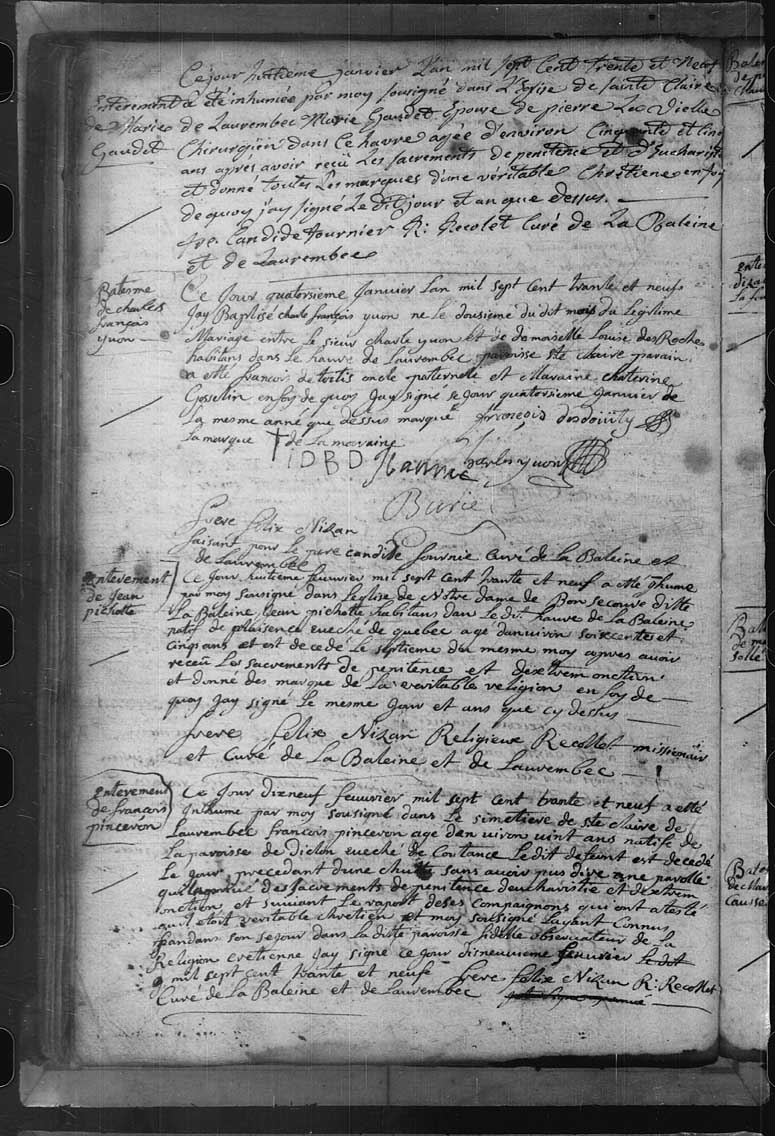 Ce jour huitieme janvier L'an mil sept Cent trente et Neuf
Enterement a été inhumée par moy Sousigné dans L'Eglise de Sainte Claire
de Marie de Laurembec Marie Gaudet Epouse de pierre La Vielle
Gaudet Chirurgien dans Ce havre agée d'environ Cinquante et Cinq
ans aprés avoir reçü Les sacrements de penitence et d'Eucharistie
et donné toutes Les marques d'une véritable Chrêtiene en foy
de quoy j'ay signé Le dit jour et an que dessus.
fre. Candide fournier R: Recolet Curé de La Baleine
et de Laurembec
Batesme
de charles
françois
yvon
Ce Jour quatorsieme Janvier Lan mil sept Cent trante et neuf
Jay Baptisé charle françois yuon ne le dousieme du dit mois du Legitime
Mariage entre Le sieur charle yuon et de demoiselle Louise des Roche
habitans dans le haure de Laurembec paroisse ste Claire parain
a etté francois de tortis oncle paternelle et Maraine chaterine
Gosselin en foy de quoy Jay signé se Jour quatorsieme Janvier de
La mesme anné que dessus marque françois
La marque † de La maraine
IDBD Jeanne Charles yuon
Burie
frere felix Nizan
faisant pour Le pere candide fournie Curé de La Baleine et
de Laurembec
enterement
de Jean
pichotte
Ce Jour huitieme feuurier mil sept Cent trante et neuf a etté Jnhume
par moy Sousigné dans Leglise de Notre dame de Bon secours ditte
La Baleine Jean pichotte habitans dans Le dit haure de La Baleine
natif de plaisence eueché de quebec age danuiron soixcente et
cinq ans et est decedé Le septieme du mesme moy apres auoir
receü Les sacrements de penitence et dextremonction
et donné des marque de La veritable religion en foy de
quoy Jay signé Le mesme Jour et ans que cy dessus
frere felix Nizan Religieux Recollet missionair
et Curé de La Baleine et de Laurembec
enterement
de francois
pinceron
Ce Jour dizneuf feuurier mil sept Cent trante et neuf a etté
Jnhume par moy sousigné dans Le simetiere de ste claire de
Laurembec francois pinceron age denuiron uint ans natif de
La paroisse de diclon eueché de Coutance Ledit defeint est decedé
Le Jour precedant dune chutte sans auoir pus dire une parolle
des sacrements de penitence deucharistie et dextrem
onction et suiuant Le raport de ses Compagnons qui ont atesté
quil etoit veritable chretien et moy sousigné Layant Connus
pandans son sejour dans La ditte paroisse fidelle obseruateur de la
Religion cretienne Jay signe ce Jour disneuuieme feuurier Le dit
mil sept Cent trante et neuf frere felix Nizan R: Recollet
Curé de La Baleine et de Laurembec